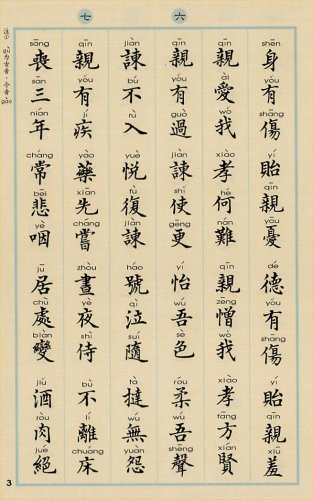 六
shēn yǒu shāng yí qīn yōu dé yǒu shāng yí qīn xiū
身有傷 貽親憂 德有傷 貽親羞
qīn ài wǒ xiào hé nán qīn zēng wǒ xiào fāng xián
親愛我 孝何難 親憎我 孝方賢
qīn yǒu guò jiàn shǐ gēng yí wú sè róu wú shēng
親有過 諫使更 怡吾色 柔吾聲
jiàn bú rù yuè fù jiàn háo qì suí tà wú yuàn
諫不入 悅復諫 號泣隨 撻無怨
七
qīn yǒu jí yào xiān cháng zhòu yè shì bù lí chuáng
親有疾 藥先嘗 晝夜侍 不離床
sāng sān nián cháng bēi yè jū chù biàn jiǔ ròu jué
喪三年 常悲咽 居處變 酒肉絕
注① gù为古音，今音gào
3